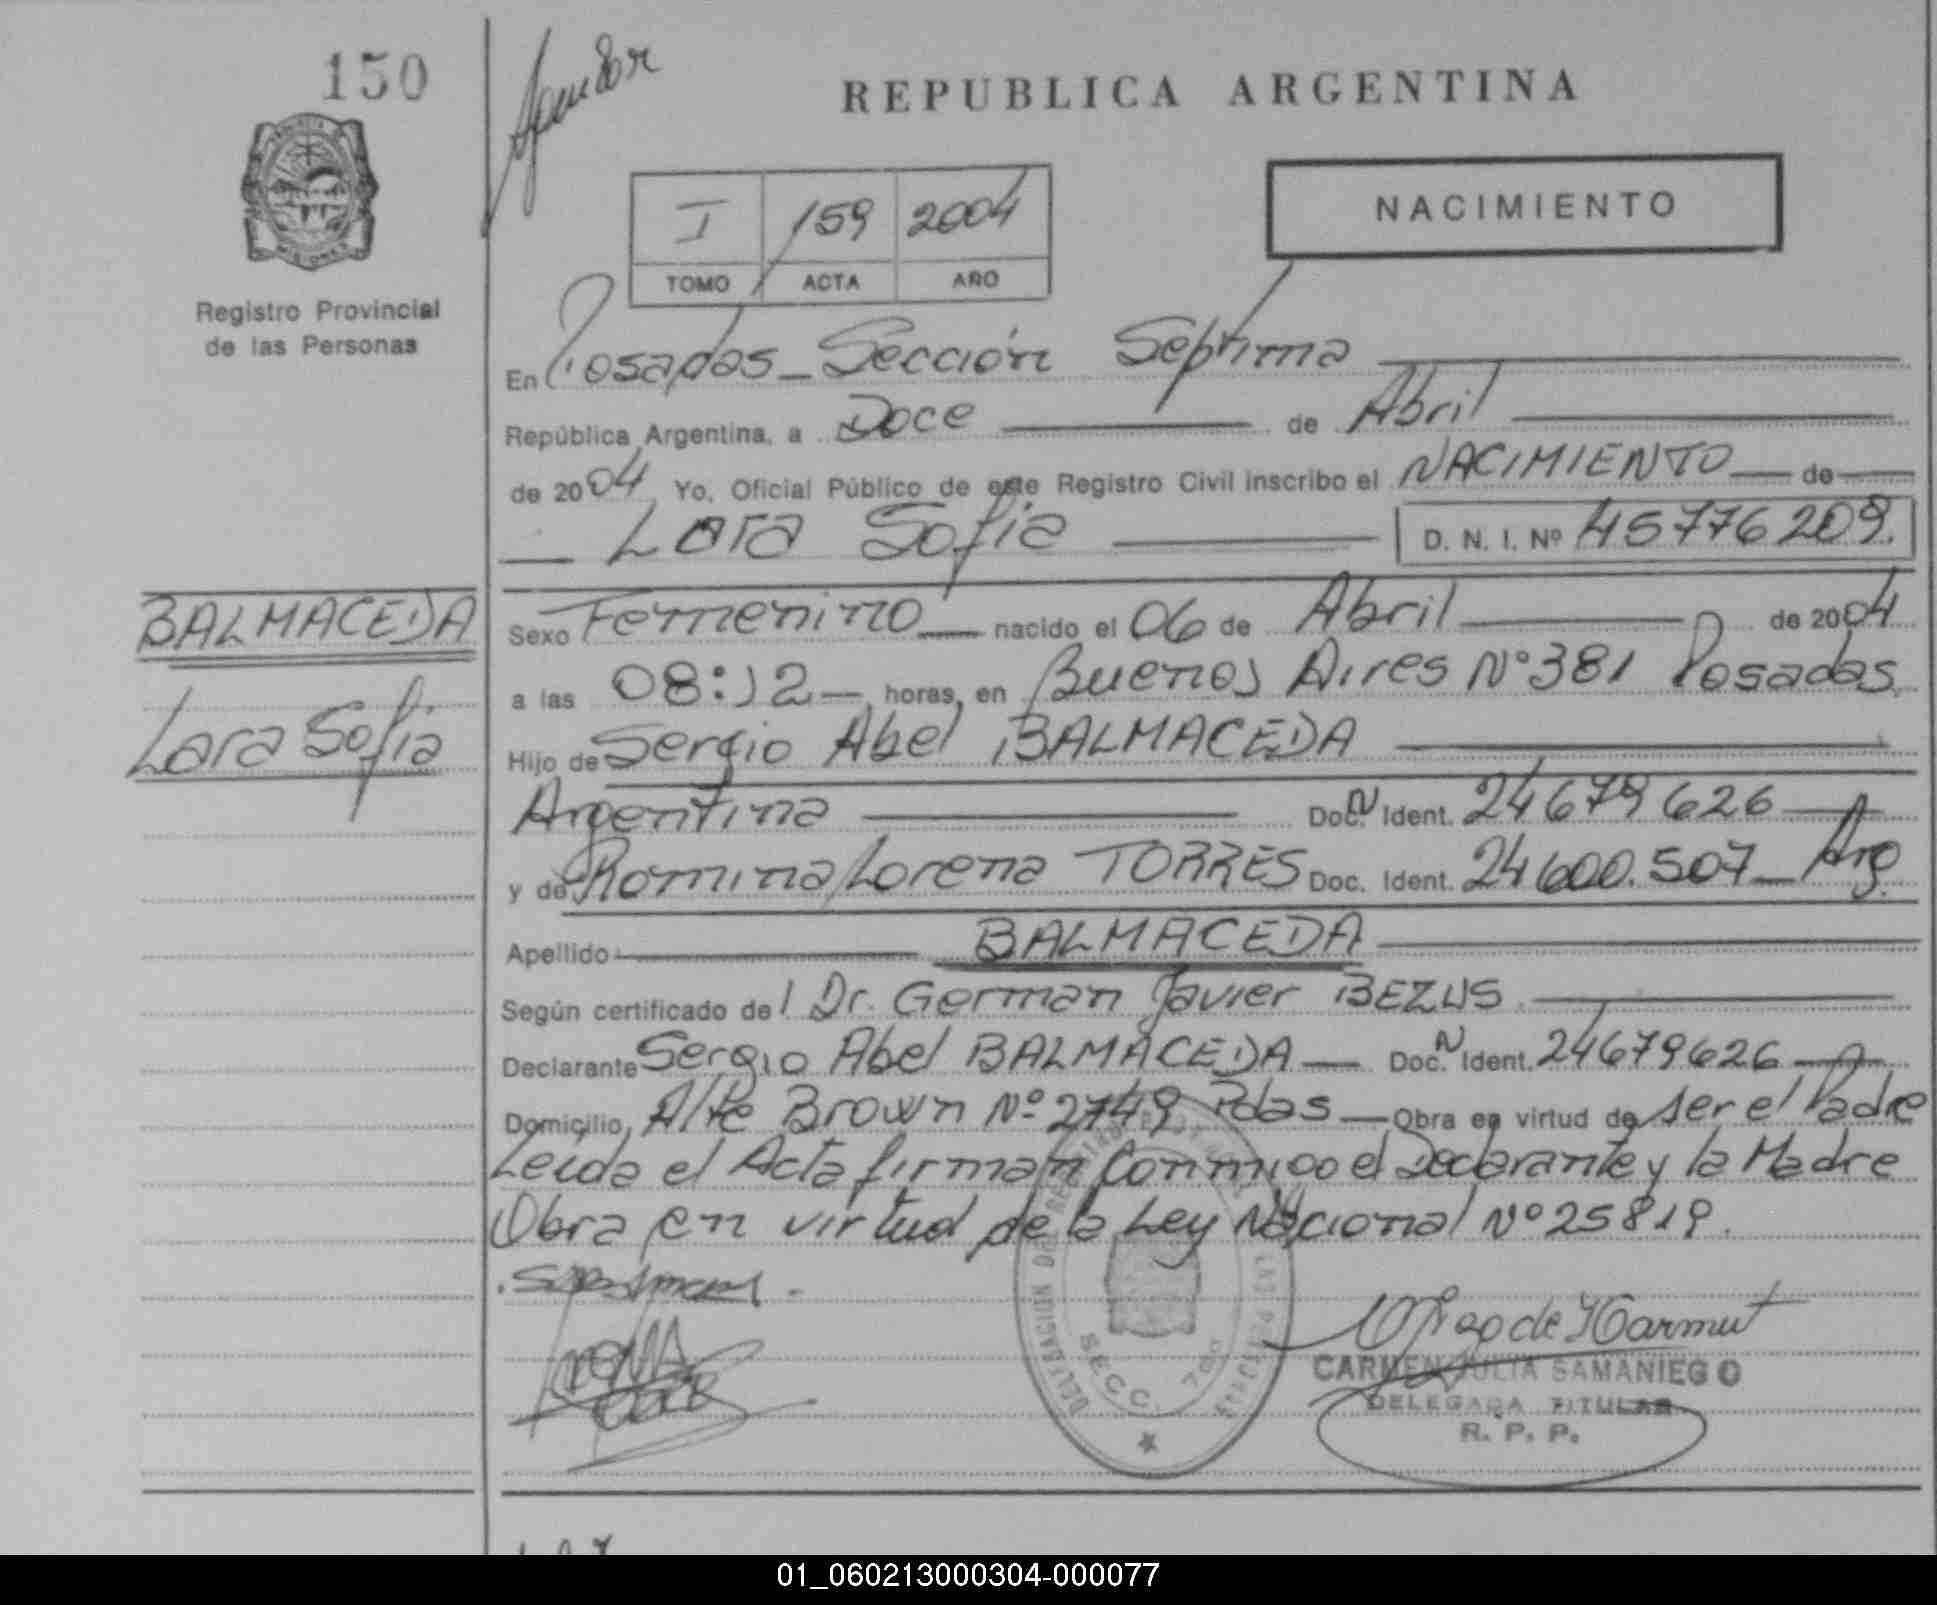 150
REPUBLICA ARGENTINA
NACIMIENTO
I 159 2004
TOMO ACTA AÑO
Registro Provincial
de las Personas
En Posadas_Sección Séptima
República Argentina, a Doce de Abril
de 2004 Yo, Oficial Público de este Registro Civil inscribo el NACIMIENTO de
Lara Sofia D. N. I. Nº 45776209.
BALMACEDA
Lara Sofia
Sexo Femenino nacido el 06 de Abril de 2004
a las 08:12 horas, en Buenos Aires Nº 381 Posadas.
Hijo de Sergio Abel BALMACEDA
Argentina Doc. N Ident. 24679626
y de Romina Lorena TORRES Doc. Ident. 24600.507_Arg.
Apellido BALMACEDA
Según certificado del Dr. German Javier BEZUS
Declarante Sergio Abel BALMACEDA Doc. N Ident. 24679626
Domicilio Alte Brown Nº 2749 Pdas Obra en virtud de ser el Padre
Leida el Acta firman Conmigo el Declarante y la Madre
Obra en virtud de la Ley Nacional Nº 25819.
SECC. 7
CARMEN JULIA SAMANIEGO
DELEGADA TITULAR
R. P. P.
01_060213000304-000077